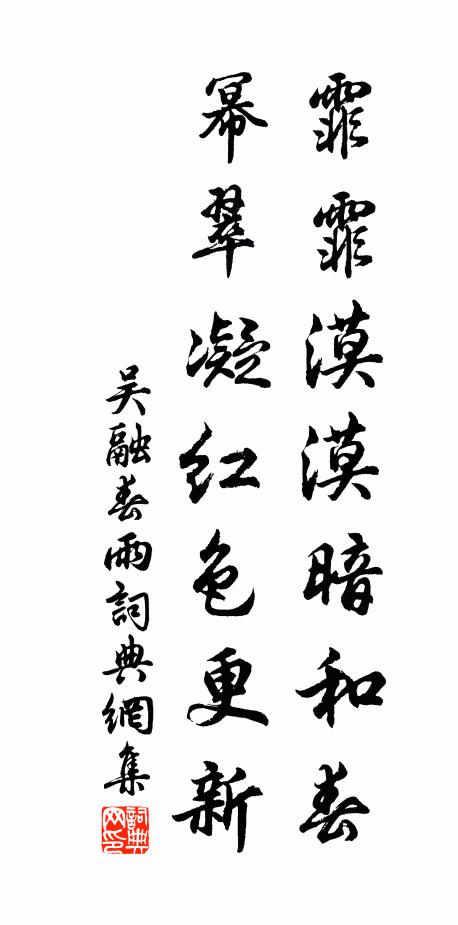 霏霏漠漠暗和春
幂翠凝红色更新
吴融春雨詞典網集
詞典网印